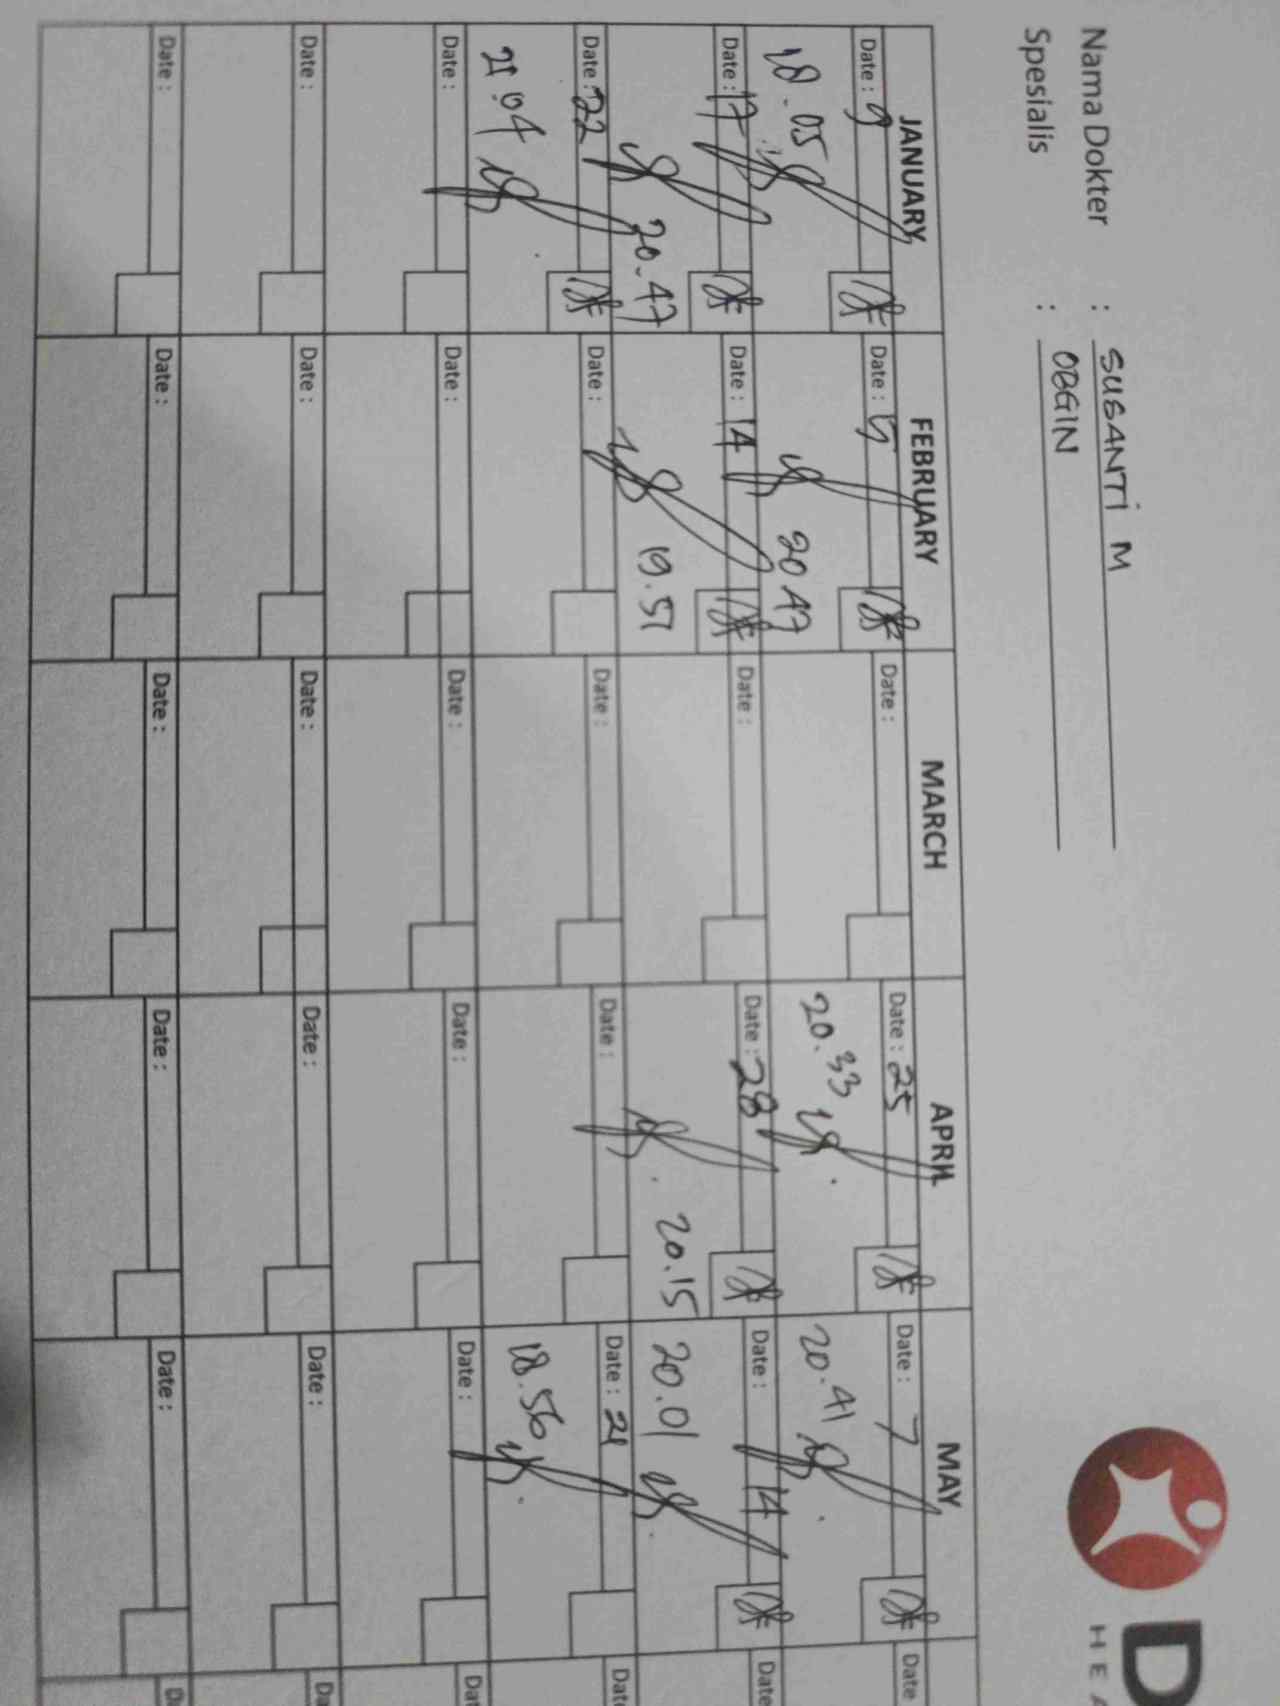 Nama Dokter : SUSANTI M
Spesialis : OBGIN
D
HEA
JANUARY FEBRUARY MARCH APRIL MAY
Date : 9 Date : 5 Date : Date : 25 Date : 7 Date
18.05 20 47 20.33 20.41
Date : 17 Date : 14 Date : Date : 28 Date : 14 Date
20.47 19.57 20.15 20.01
Date : 22 Date : Date : Date : Date : 21 Date
21.04 18.56
Date : Date : Date : Date : Date : Dat
Date : Date : Date : Date : Date : Da
Date : Date : Date : Date : Date : Da